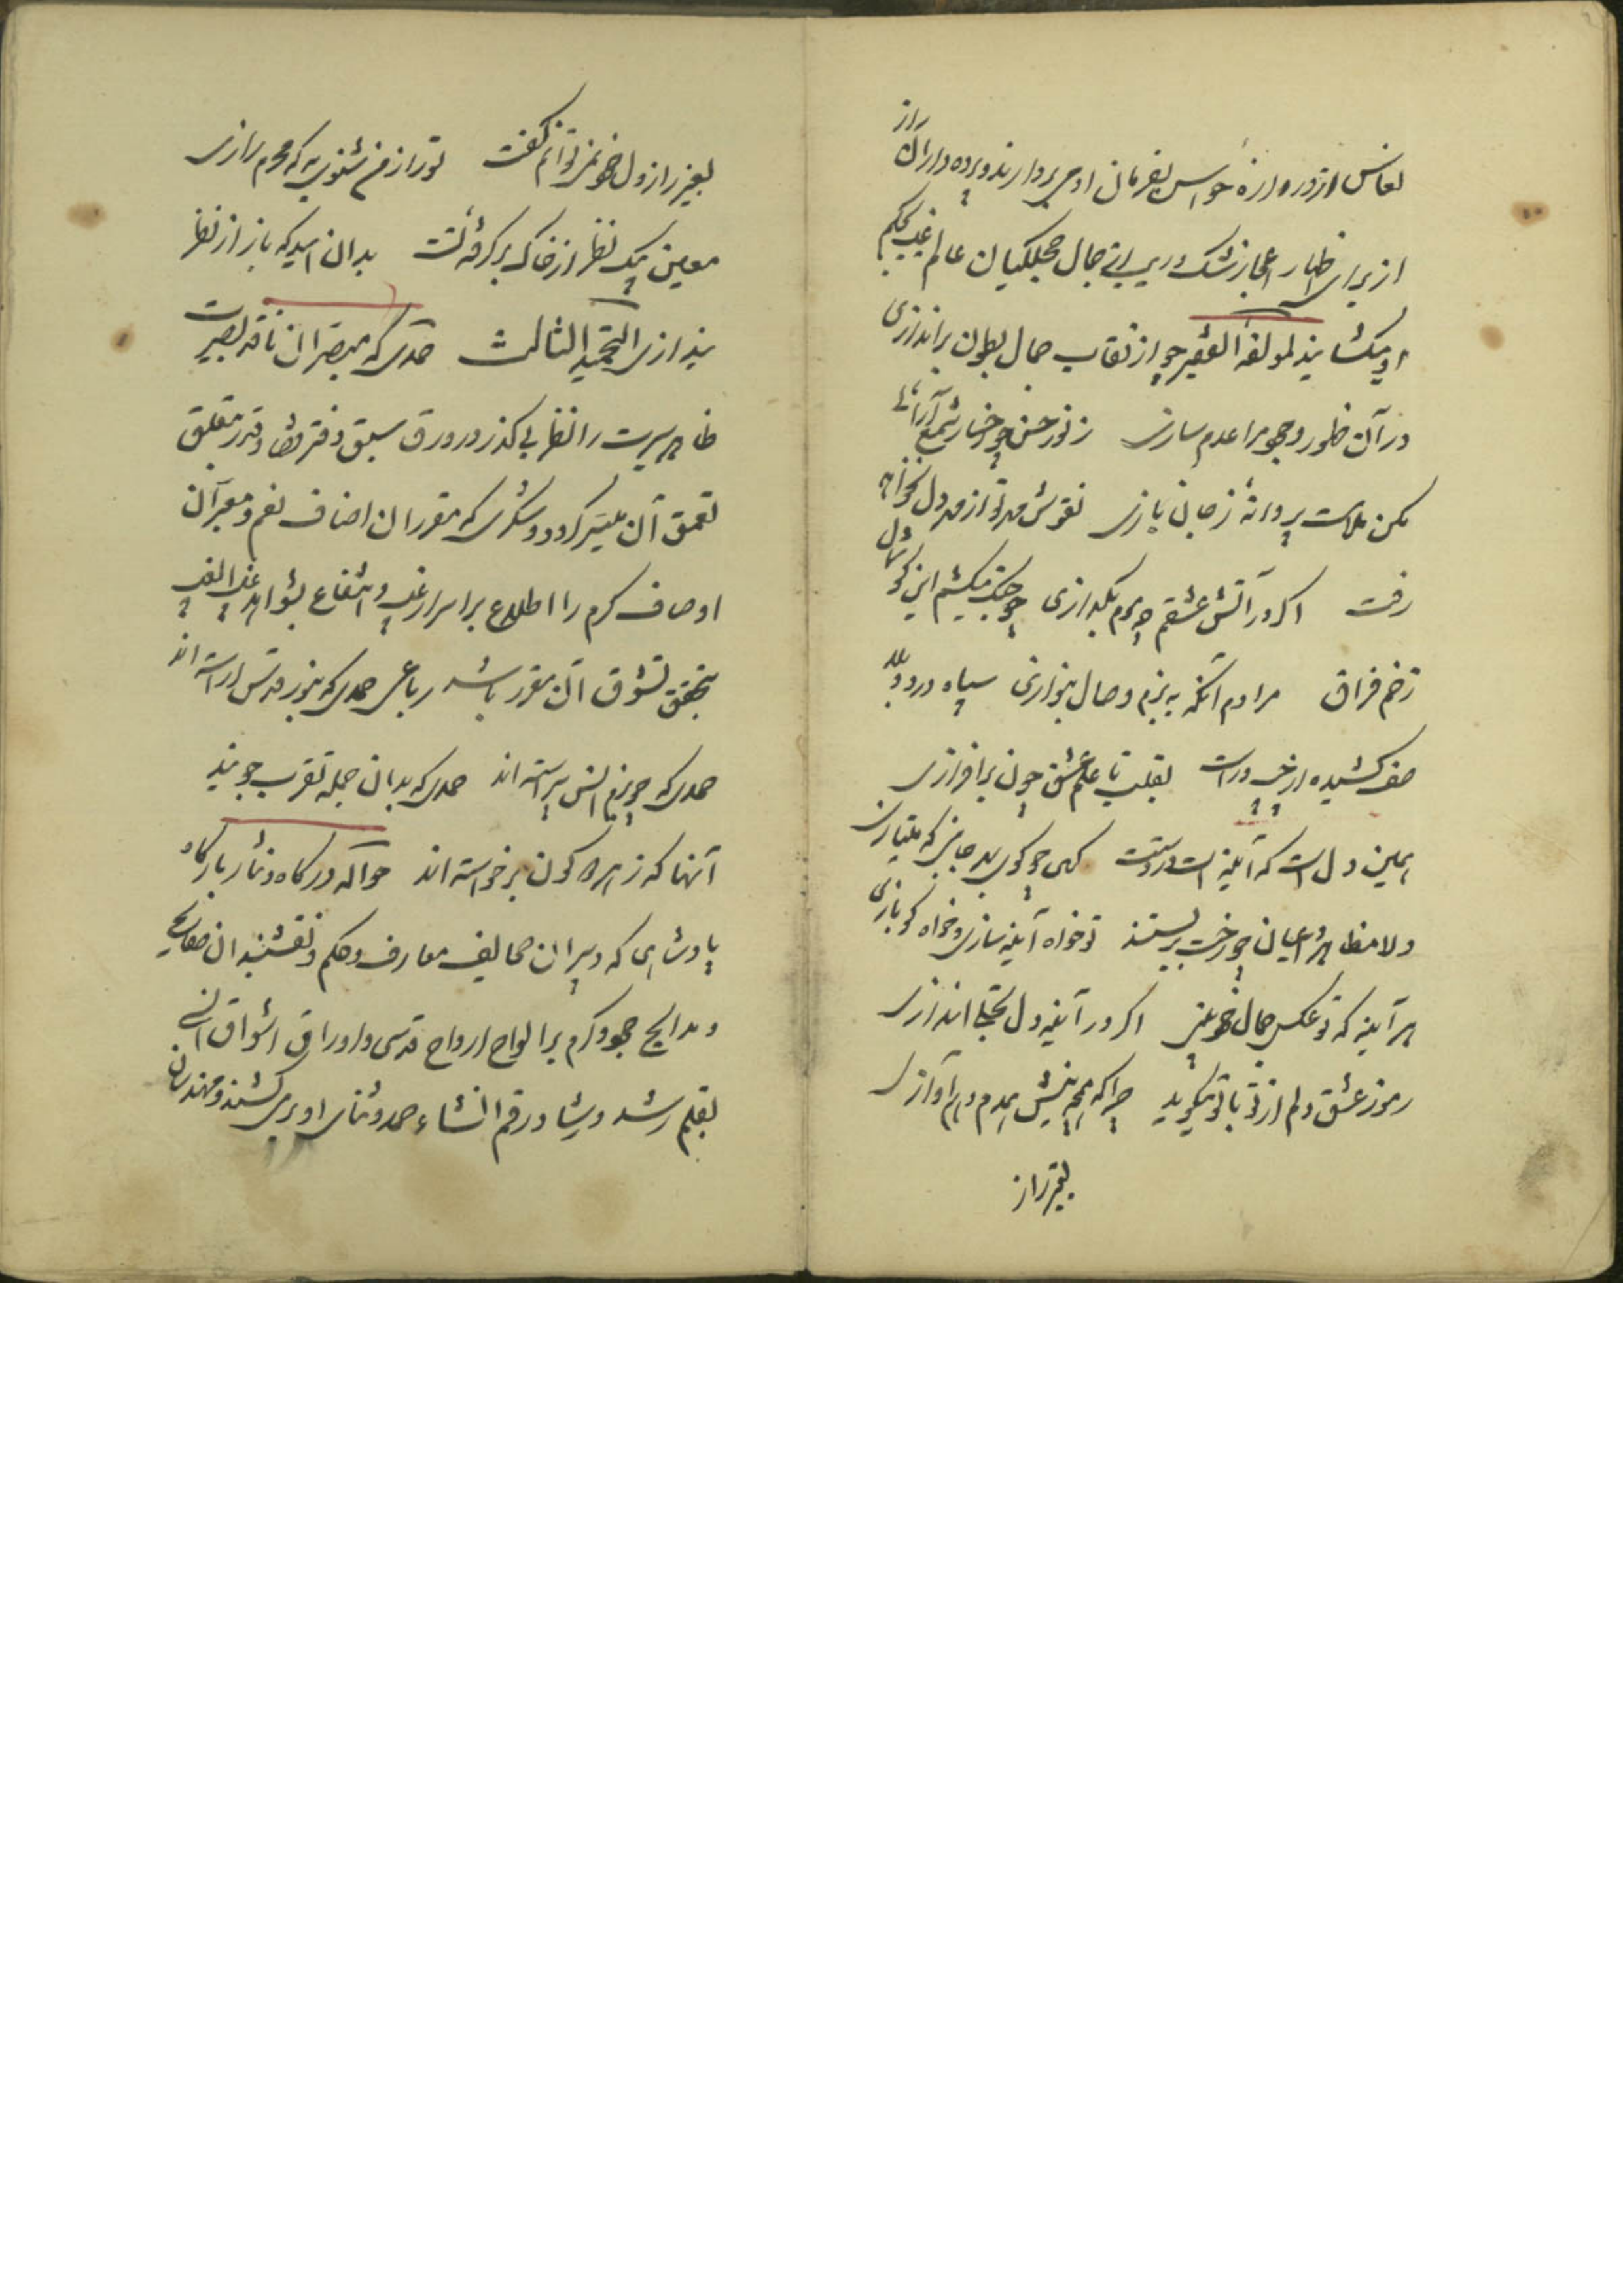 از برای اظهار اعجاز نشک و ریب از جمال حجلگیان عالم غیب بحکم
او میکشایند لمولفه الفقیر چو از نقاب جمال بطون براندازی
در آن ظهور وجود مرا عدم سازی ز نور حسن چو رخسار شمع آرائی
مکن ملامت پروانهٔ ز جان بازی نقوش مهر تو از مهر دل نخواهد
رفت اکر در آتش عشقم چو موم بکدازی چو چنک میکشم این کوشمال
زخم فراق مرا دم آنکه به بزم وصال بنوازی سپاه درد و بلا
صف کشیده از چپ و راست بقلب تا علم عشق چون برافرازی
همین دل است که آیینه است در دستت کهی چو کوی بد جانبی که میتازی
ولا مظاهر اعیان چو رخت بربستند تو خواه آینه سازی و خواه کو بازی
هر آینه که تو عکس جمال خود بینی اکر در آینه دل تجلی اندازی
رموز عشق دلم از تو با تو میکوید چرا که همچو نیش همدم و هم آوازی
بغیر راز
بغیر راز دل خود نمی توانم کفت تو راز من شنوی به که محرم رازی
معین بیک نظر از خاک برکرفته تست بدان امید که باز از نظر
نیندازی التحمید الثالث حمدی که مبصران ناقد بصیرت
ظاهر سیرت را نظر بی کذر در ورق سبق دفتر قضا و قدر متعلق
تعمق آن میسر کردد و شکری که مقرران اصناف نعم و معبران
اوصاف کرم را اطلاع بر اسرار غیب و انتفاع بشواهد غیب الغیب
بتحقق تشوق آن مقرر باشد رباعی حمدی که بنور قدس آراسته اند
حمدی که چو بزم انس پیراسته اند حمدی که بدان جمله تقرب جویند
آنها که ز هر دو کون برخواسته اند حوالهٔ درکاه و نثار بارکاه
پادشاهی که دبیران صحایف معارف و حکم و نقشبندان صفایح
و مدایح جود و کرم بر الواح ارواح قدسی و اوراق اشواق انسی
بقلم رشد و یشا و رقم انشاء حمد و ثنای او بری کشند و مهندسان